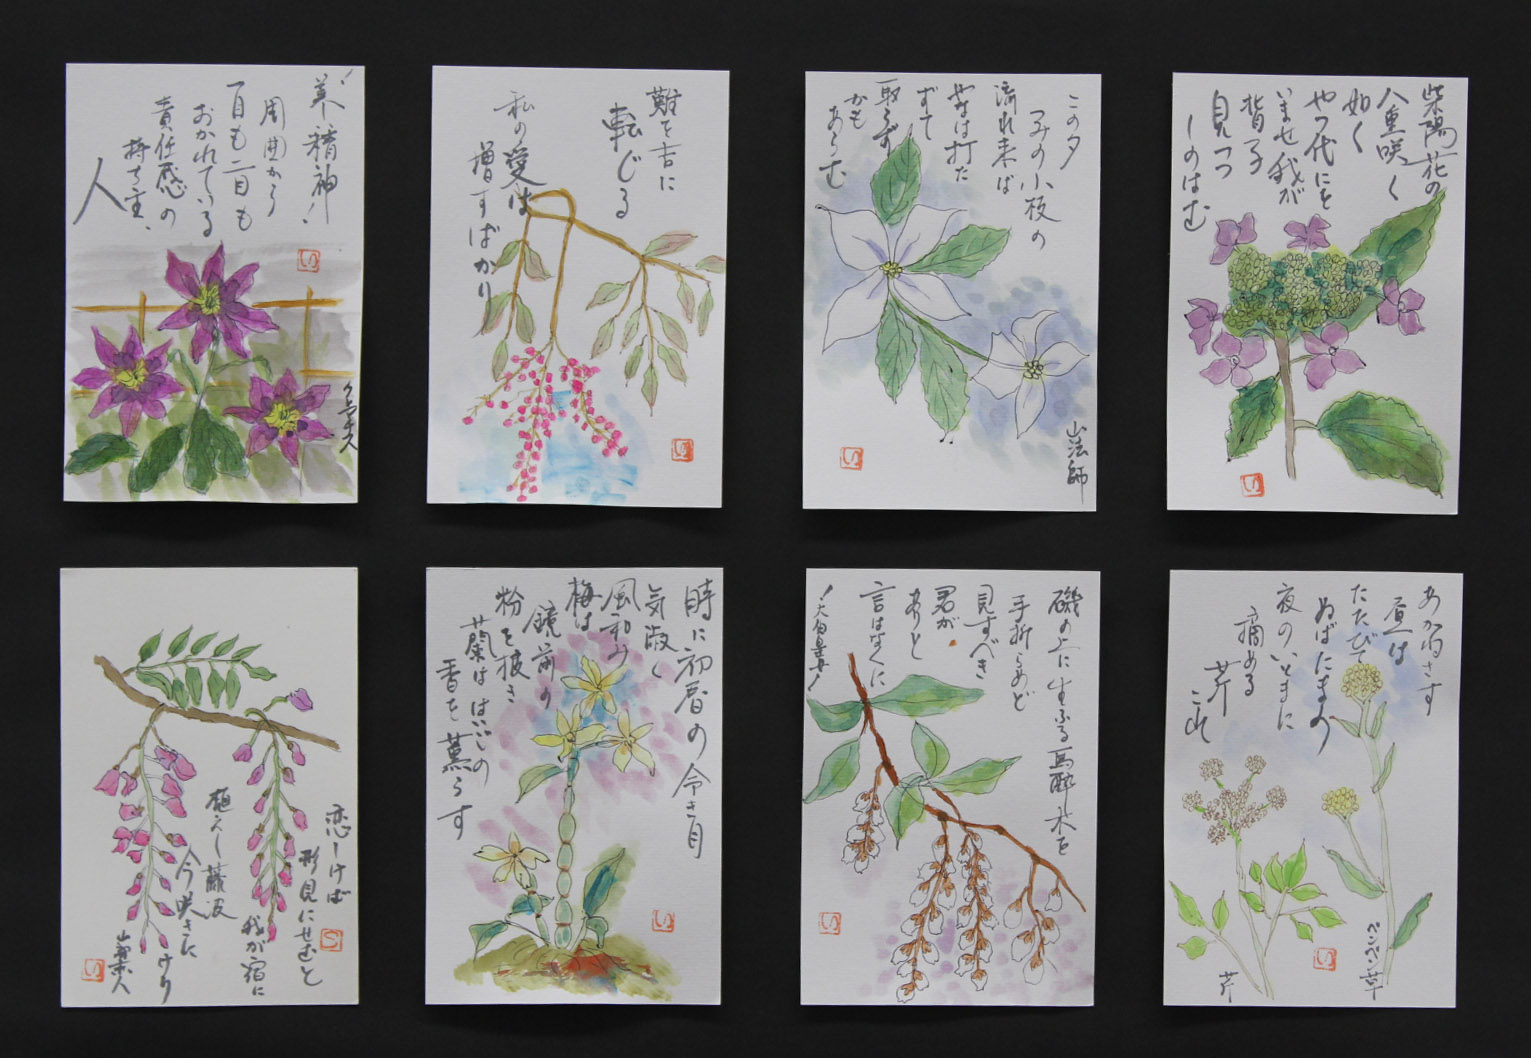 美、精神!
周囲から
一目も二目も
おかれている
責任感の
持ち主、
人
クレマチス
難を吉に
転じる
私の愛は
増すばかり
この夕
つみの小枝の
流れ来ば
やなは打た
ずて
取らず
かも
あらむ
山法師
紫陽花の
八重咲く
如く
やつ代にを
いませ我が
背子
見つつ
しのはむ
恋しけば
形見にせむと
我が宿に
植ゑし藤波
今咲きに
けり
山部赤人
時に初春の令き月
気淑く
風和み
梅は
鏡前の
粉を披き
蘭ははいの
香を薫らす
磯の上に生ふる馬酔木を
手折らめど
見すべき
君が
ありと
言はなくに
!大伯皇女!
あかねさす
昼は
たたびて
ぬばたまの
夜のいとまに
摘める
芹
これ
ペンペン草
芹